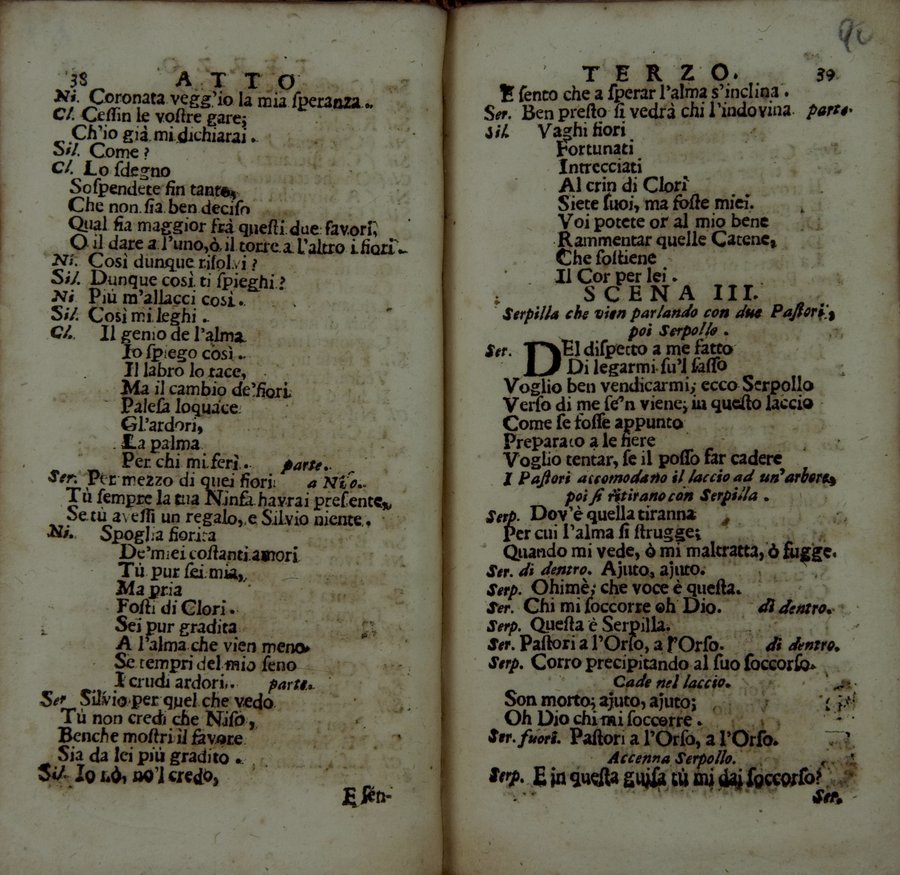 38 ATTO
Ni. Coronata vegg'io la mia ſperanza.
Cl. Ceſſin le voſtre gare;
Ch'io già mi dichiarai.
Sil. Come?
Cl. Lo ſdegno
Soſpendete fin tanto,
Che non ſia ben deciſo
Qual ſia maggior frà queſti due favori,
O il dare a l'uno, ò il torre a l'altro i fiori.
Ni. Così dunque riſolvi?
Sil. Dunque così ti ſpieghi?
Ni Più m'allacci così.
Sil. Così mi leghi.
Cl. Il genio de l'alma
Io ſpiego così.
Il labro lo tace,
Ma il cambio de'fiori
Paleſa loquace
Gl'ardori,
La palma
Per chi mi ferì. parte.
Ser. Per mezzo di quei fiori a Niſo.
Tù ſempre la tua Ninfa havrai preſente,
Se tù aveſſi un regalo, e Silvio niente.
Ni. Spoglia fiorita
De'miei coſtanti amori
Tù pur ſei mia,
Ma pria
Foſti di Clori.
Sei pur gradita
A l'alma che vien meno
Se tempri del mio ſeno
I crudi ardori. parte.
Ser Silvio per quel che vedo
Tù non credi che Niſo,
Benche moſtri il favore
Sia da lei più gradito.
Sil. Io nò, no'l credo,
E ſen-
90
TERZO. 39
E ſento che a ſperar l'alma s'inclina.
Ser. Ben preſto ſi vedrà chi l'indovina parte.
Sil. Vaghi fiori
Fortunati
Intrecciati
Al crin di Clori
Siete ſuoi, ma foſte miei.
Voi potete or al mio bene
Rammentar quelle Catene,
Che ſoſtiene
Il Cor per lei.
SCENA III.
Serpilla che vien parlando con due Paſtori,
poi Serpollo.
Ser. DEl diſpetto a me fatto
Di legarmi ſu'l ſaſſo
Voglio ben vendicarmi; ecco Serpollo
Verſo di me ſe'n viene; in queſto laccio
Come ſe foſſe appunto
Preparato a le fiere
Voglio tentar, ſe il poſſo far cadere
I Paſtori accomodano il laccio ad un'arbore,
poi ſi ritirano con Serpilla.
Serp. Dov'è quella tiranna
Per cui l'alma ſi ſtrugge;
Quando mi vede, ò mi maltratta, ò fugge.
Ser. di dentro. Ajuto, ajuto.
Serp. Ohimè; che voce è queſta.
Ser. Chi mi ſoccorre oh Dio. di dentro.
Serp. Queſta è Serpilla.
Ser. Paſtori a l'Orſo, a l'Orſo. di dentro.
Serp. Corro precipitando al ſuo ſoccorſo.
Cade nel laccio.
Son morto; ajuto, ajuto;
Oh Dio chi mi ſoccorre.
Ser. fuori. Paſtori a l'Orſo, a l'Orſo.
Accenna Serpollo.
Serp. E in queſta guiſa tù mi dai ſoccorſo?
Ser.